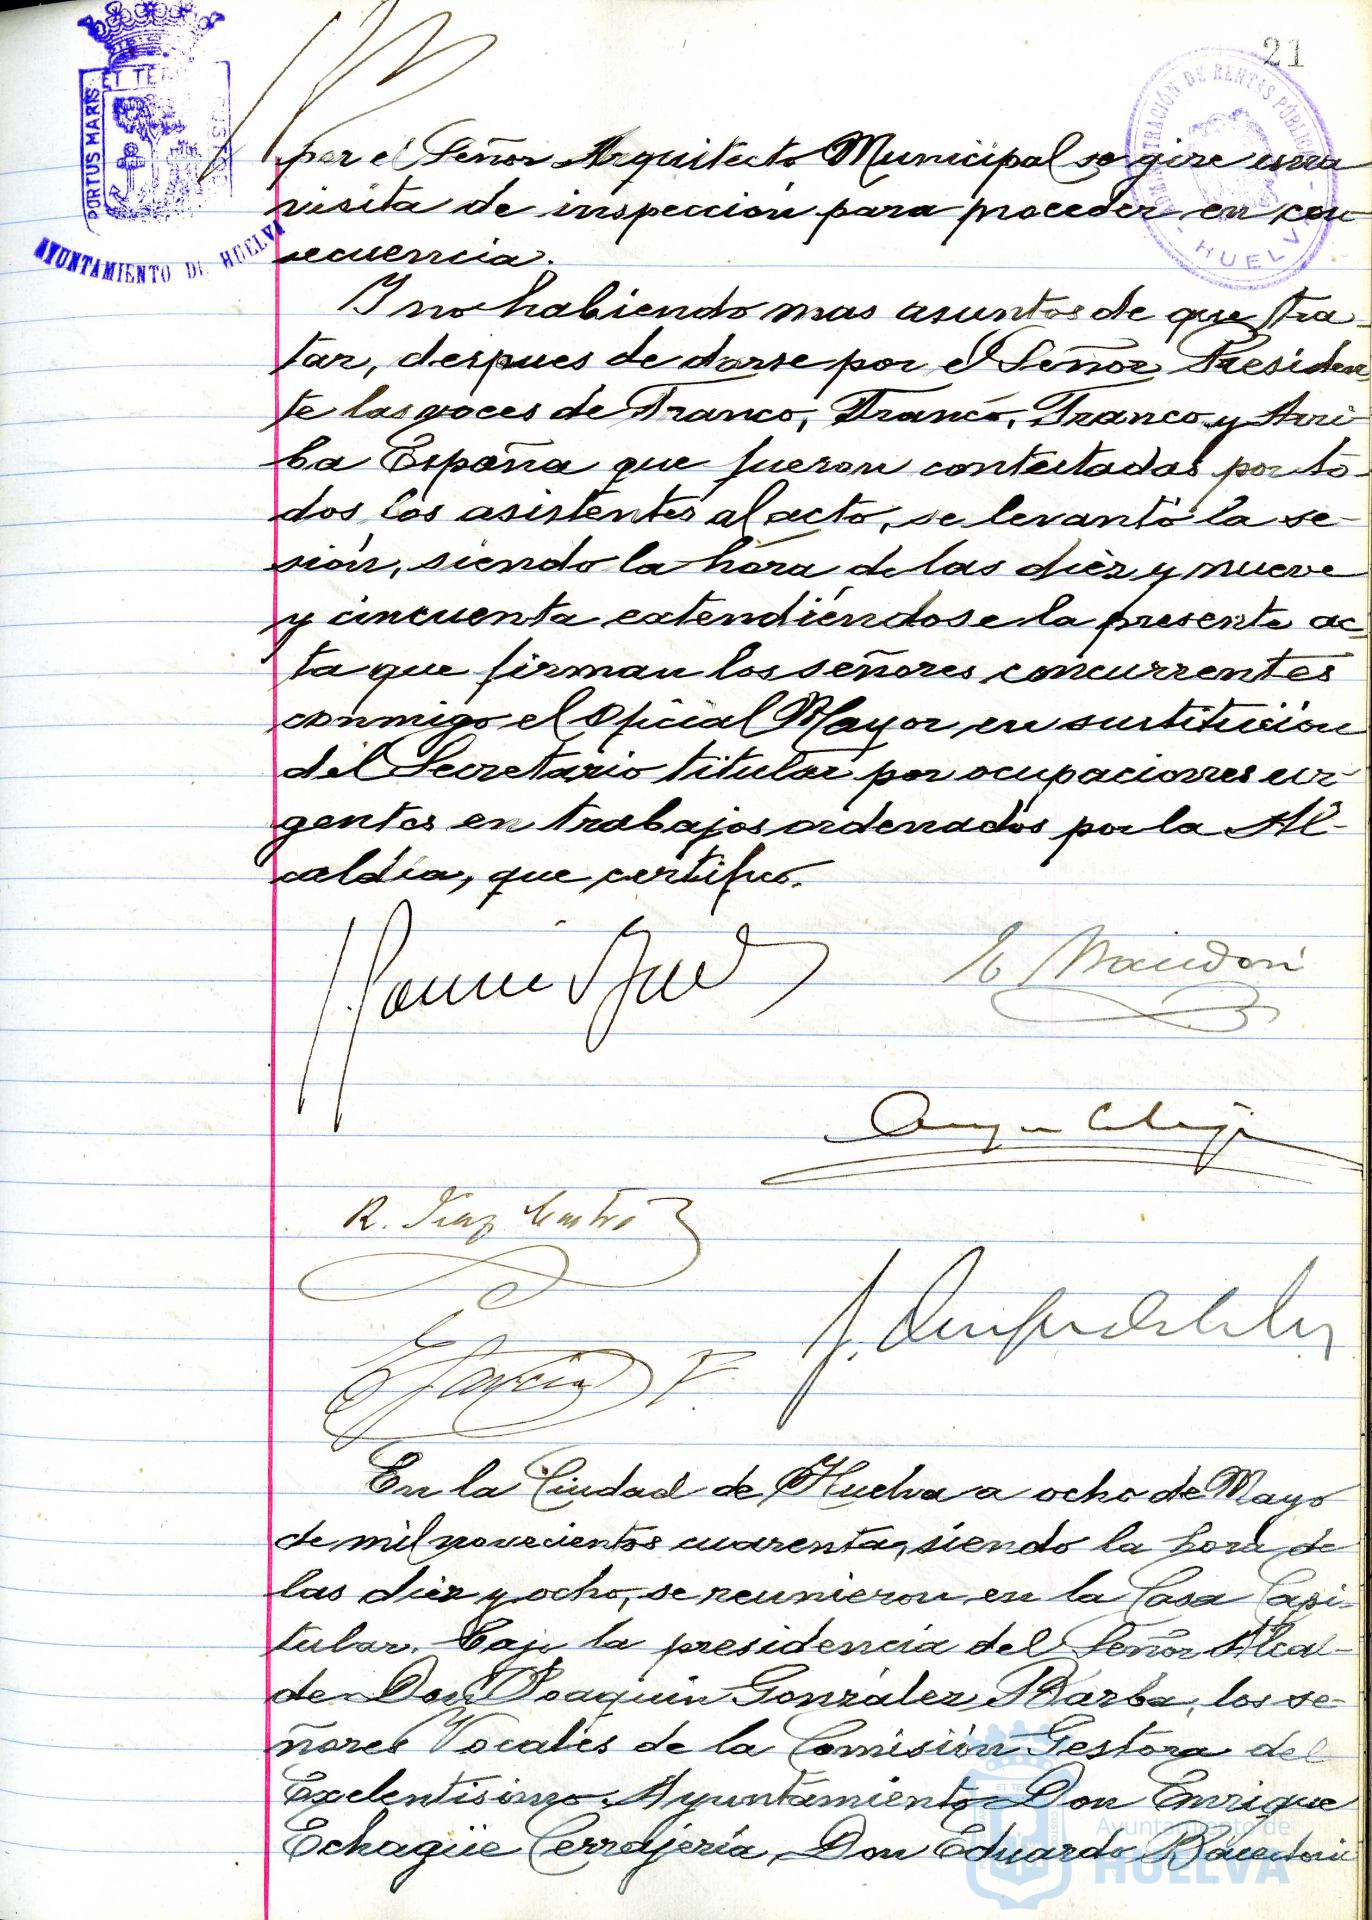 21
PORTUS MARIS
ET TER
AYUNTAMIENTO DE HUELVA
ADMINISTRACIÓN DE RENTAS PÚBLICAS
- HUELVA -
por el Señor Arquitecto Municipal se gire una
visita de inspección para proceder en con
secuencia.
Y no habiendo mas asuntos de que tra-
tar, despues de darse por el Señor Presiden
te las voces de Franco, Franco, Franco y Arri-
ba España que fueron contestadas por to-
dos los asistentes al acto, se levantó la se-
sión, siendo la hora de las diez y nueve
y cincuenta extendiéndose la presente ac-
ta que firman los señores concurrentes
conmigo el Oficial Mayor en sustitución
del Secretario titular por ocupaciones ur-
gentes en trabajos ordenados por la Al-
caldía, que certifico.
R. Díaz Castro
E García P.
En la Ciudad de Huelva a ocho de Mayo
de mil novecientos cuarenta, siendo la hora de
las diez y ocho, se reunieron en la Casa Capi-
tular. bajo la presidencia del Señor Alcal-
de Don Joaquin González Barba, los se-
ñores Vocales de la Comisión Gestora del
Exelentisimo Ayuntamiento Don Enrique
Echagüe Cerrajería, Don Eduardo
Ayuntamiento de
HUELVA